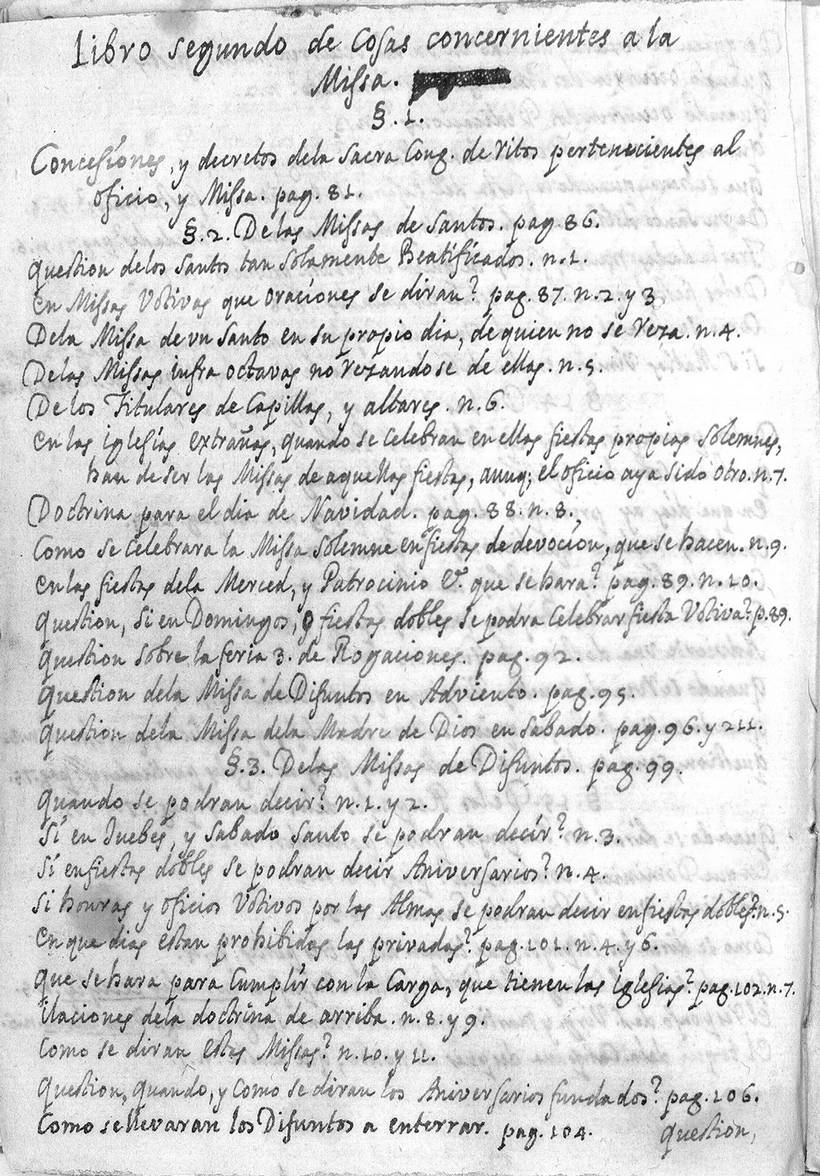 Libro segundo de Cosas concernientes a la
Missa.
§. 1.
Concesiones, y decretos dela Sacra Cong. de Ritos pertenecientes al
oficio, y Missa. pag. 81.
§. 2. Delas Missas de Santos. pag. 86.
Question delos Santos tan solamente Beatificados. n. 1.
En Missas Votivas que oraciones se diran? pag. 87. n. 2. y 3.
Dela Missa de vn Santo en su propio dia, de quien no se Reza. n. 4.
Delas Missas infra octavas no Rezandose de ellas. n. 5.
De los Titulares de Capillas, y altares. n. 6.
En las iglesias extrañas, quando se celebran en ellas fiestas propias Solemnes,
han de ser las Missas de aquellas fiestas, aunq; el oficio aya sido otro. n. 7.
Doctrina para el dia de Navidad. pag. 88. n. 8.
Como se celebrara la Missa solemne en fiestas de devocion, que se hacen. n. 9.
En las fiestas dela Merced, y Patrocinio &. que se hara? pag. 89. n. 10.
Question, Si en Domingos, o fiestas dobles se podra Celebrar fiesta Votiva? p. 89.
Question sobre la feria 3. de Rogaciones. pag. 92.
Question dela Missa de Difuntos en Adviento. pag. 95.
Question dela Missa dela Madre de Dios en Sabado. pag. 96. y 211.
§. 3. Delas Missas de Difuntos. pag. 99.
Quando se podran decir? n. 1. y 2.
Si en Juebes, y Sabado Santo se podran decir? n. 3.
Si en fiestas dobles se podran decir Aniversarios? n. 4.
Si honras y oficios Votivos por las Almas se podran decir en fiestas dobles? n. 5.
En que dias estan prohibidas las privadas? pag. 101. n. 4. y 6.
Que se hara para Cumplir con la Carga, que tienen las iglesias? pag. 102. n. 7.
ilaciones dela doctrina de arriba. n. 8. y 9.
Como se diran estas Missas? n. 10. y 11.
Question, quando, y como se diran los Aniversarios fundados? pag. 106.
Como se llevaran los Difuntos a enterrar. pag. 104.
Question,